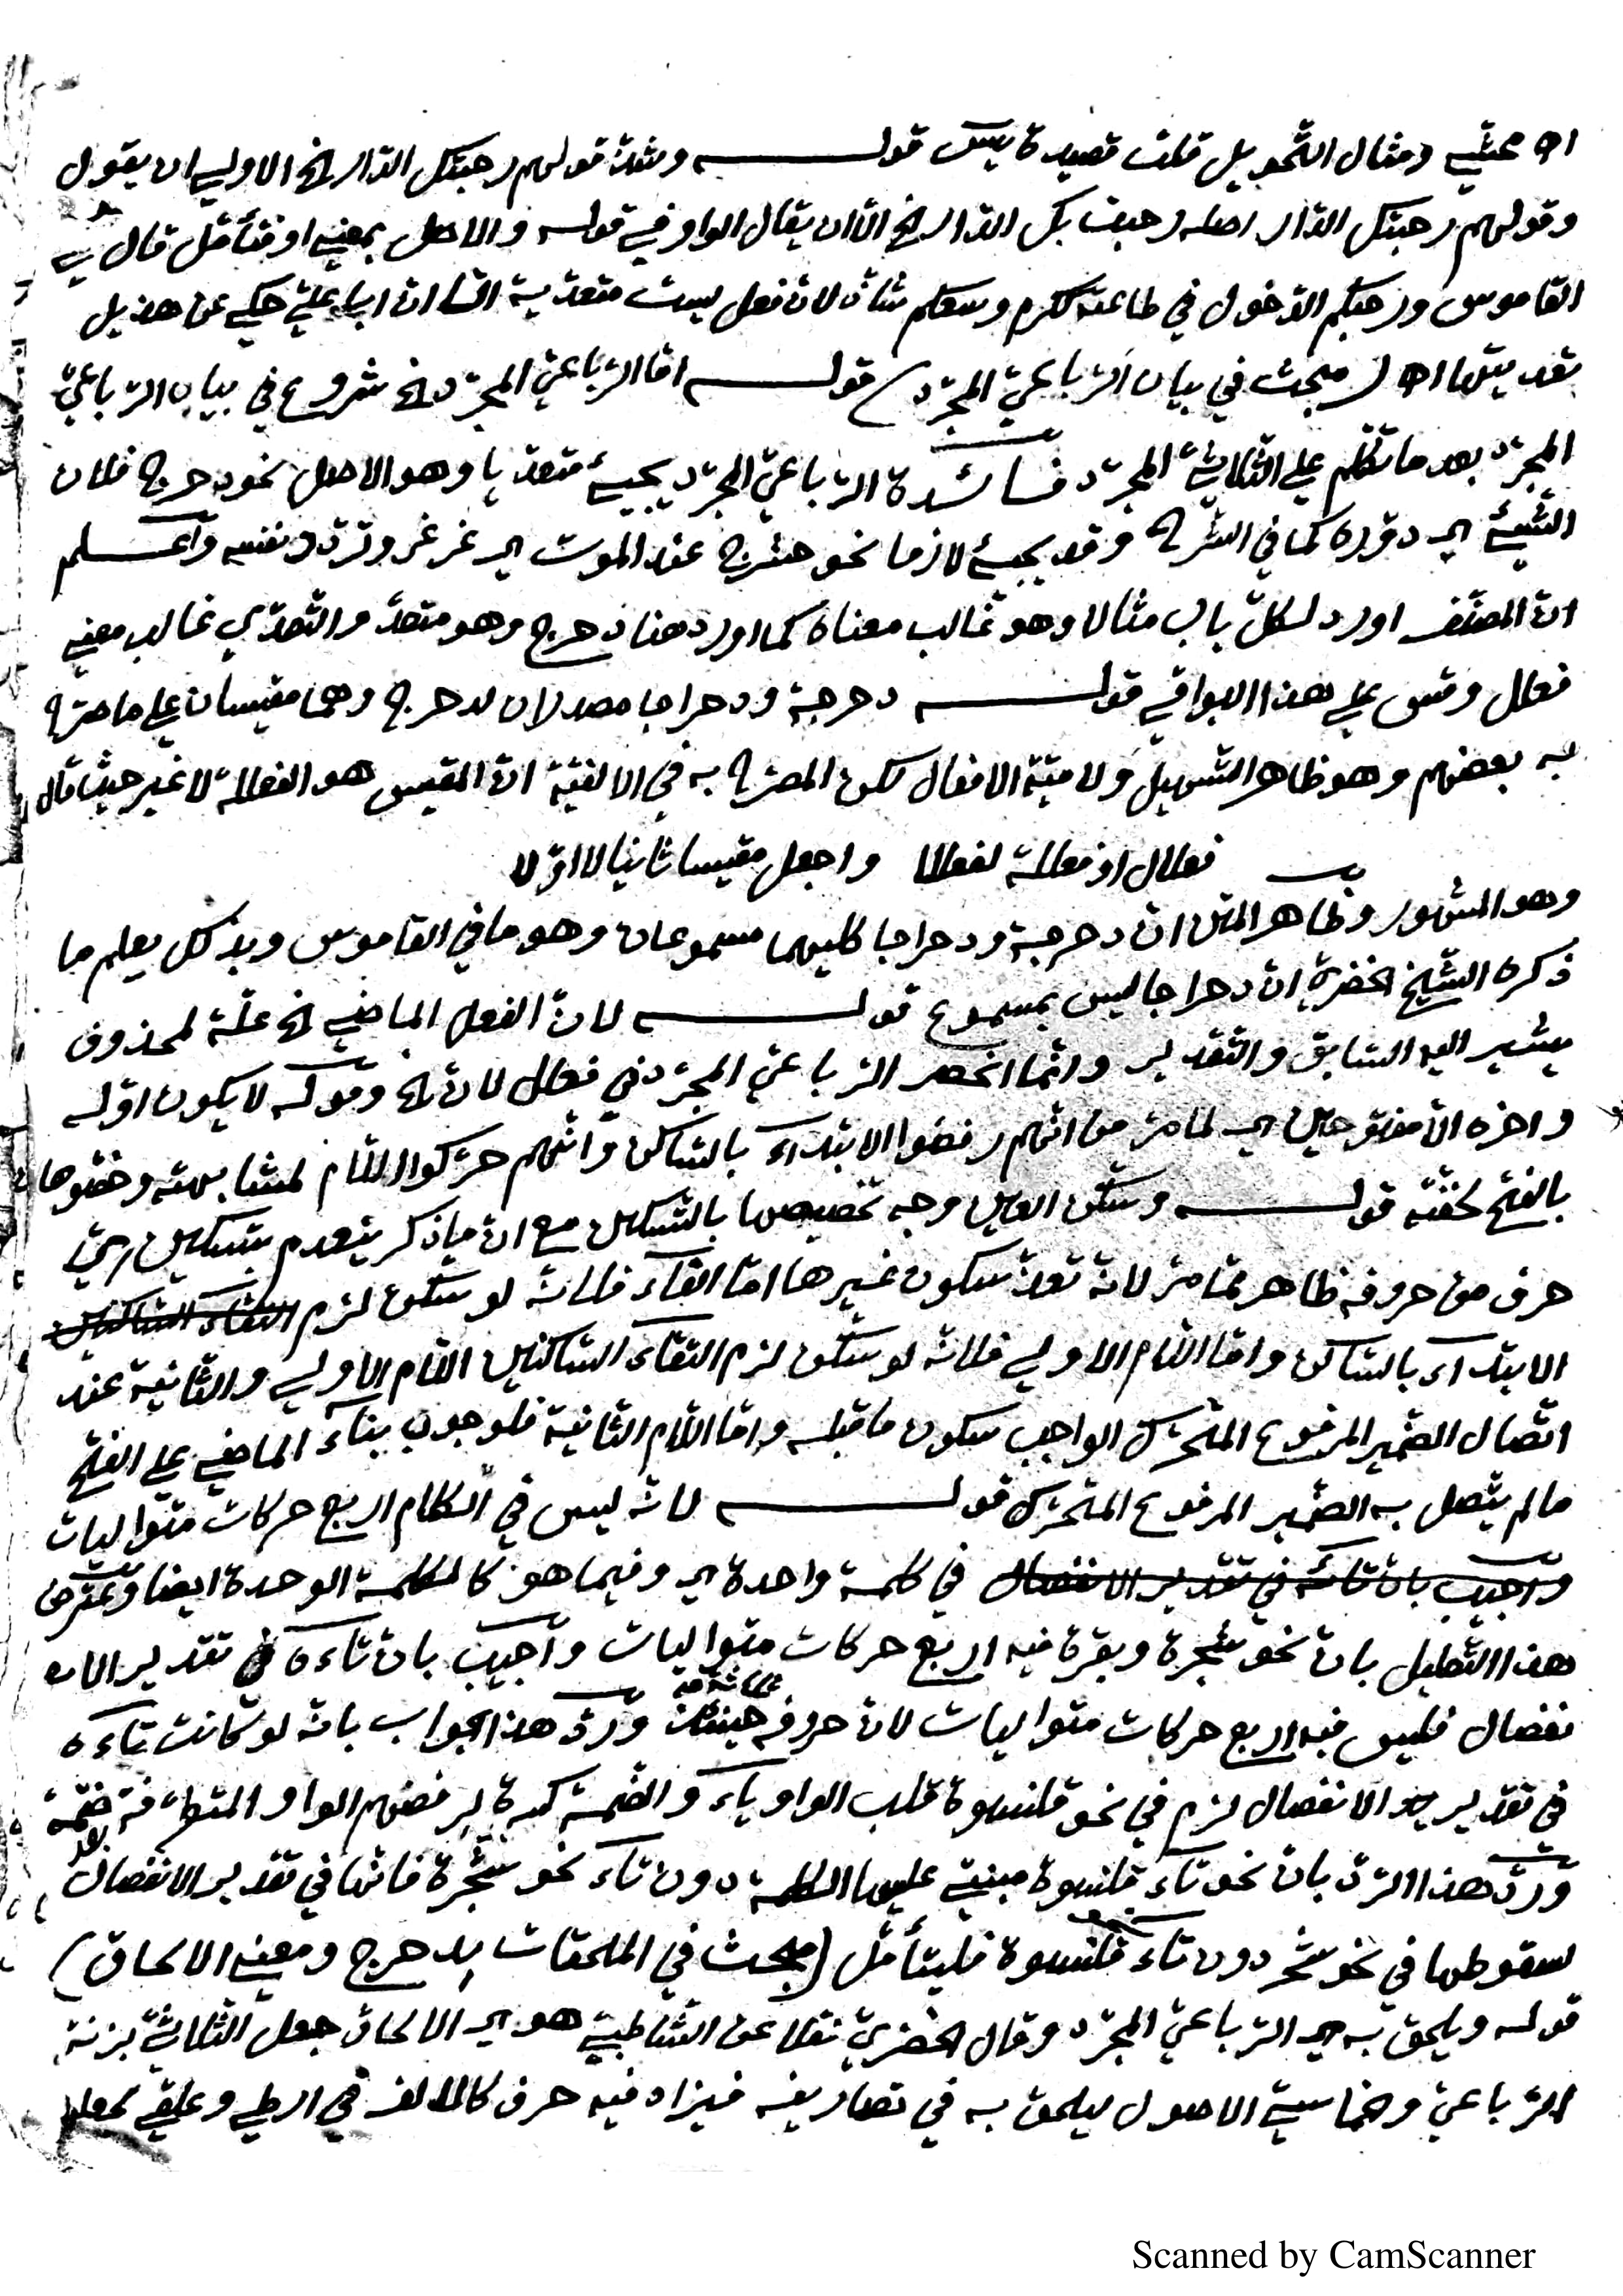 اه محشي ومثال التحويل قلت قصيدة يٓس قولـه وشذ قولهم رحبتك الدار الخ الاولى ان يقول
وقولهم رحبتك الدار اصله رحبت بك الدار الخ الا ان يقال الواو في قوله والاصل بمعنى او فتأمل قال في
القاموس ورحبكم الدخول في طاعته ككرم وسمع شاذ لان فعل ليست متعدية الا ان ابا علي حكى عن هذيل
تعديتها اه ( مبحث في بيان الرباعي المجرد ) قولـه اما الرباعي المجرد الخ شروع في بيان الرباعي
المجرد بعد ما تكلم على الثلاثي المجرد فائدة الرباعي المجرد يجيء متعديا وهو الاصل نحو دحرج فلان
الشيئ اي دوره كما في الشرح وقد يجيئ لازما نحو حشرج عند الموت اي غرغر وتردد نفسه واعلم
ان المصنف اورد لكل باب مثالا وهو غالب معناه كما اورد هنا دحرج وهو متعد والتعدي غالب معنى
فعلل وقس على هذا البواقي قولـه دحرجة ودحراجا مصدران لدحرج وهما مقيسان على ما صرح
به بعضهم وهو ظاهر التسهيل ولامية الافعال لكن المصرح به في الالفية ان المقيس هو الفعللة لا غير حيث قال
فعلال او فعللة لفعللا واجعل مقيسا ثانيا لا اولا
وهو المشهور وظاهر المتن ان دحرجة ودحراجا كليهما مسموعان وهو ما في القاموس وبذلك يعلم ما
ذكره الشيخ الخضري ان دحراجا ليس بمسموع قولـه لان الفعل الماضي الخ علة لمحذوف
يشير اليه السابق والتقدير وانما انحصر الرباعي المجرد في فعلل لان الخ وقوله لا يكون اوله
واخره الا مفتوحين اي لما مر من انهم رفضوا الابتداء بالساكن وانهم حركوا اللام لمشابهته وخصوها
بالفتح لخفته قولـه وسكن العين وجه تخصيصها بالتسكين مع ان ما ذكر ينعدم بتسكين اي
حرف من حروفه ظاهر مما مر لانه تعذر سكون غيرها اما الفاء فلانه لو سكن لزم التقاء الساكنين
الابتداء بالساكن واما اللام الاولى فلانه لو سكن لزم التقاء الساكنين اللام الاولى والثانية عند
اتصال الضمير المرفوع المتحرك الواجب سكون ما قبله واما اللام الثانية فلوجوب بناء الماضي على الفتح
ما لم يتصل به الضمير المرفوع المتحرك قولـه لانه ليس في الكلام اربع حركات متواليات
واجيب بان تائه في تقدير الانفصال في كلمة واحدة اي وفيما هو كالكلمة الوحدة ايضا ويعترض
هذا التعليل بان نحو شجرة وبقرة فيه اربع حركات متواليات واجيب بان تاءه في تقدير الا
نفصال فليس فيه اربع حركات متواليات لان حروفه حينئذ ثلاثة ورد هذا الجواب بانه لو كانت تاءه
في تقدير الانفصال لزم في نحو قلنسوة قلب الواو ياء والضمة كسرة لرفضهم الواو المتطرفة بعد ضمة
ورد هذا الرد بان نحو تاء قلنسوة مبنية عليها الكلمة دون تاء نحو شجرة فانها في تقدير الانفصال
لسقوطها في نحو شجر دون تاء قلنسوة فليتأمل (مبحث في الملحقات بدحرج ومعنى الالحاق)
قوله ويلحق به اي الرباعي المجرد وقال الخضري نقلا عن الشاطبي هو اي الالحاق جعل الثلاثي بزنة
الرباعي وخماسي الاصول ليلحق به في تصاريفه فيزاد فيه حرف كالالف في ارطى وعلقى لجعل
Scanned by CamScanner